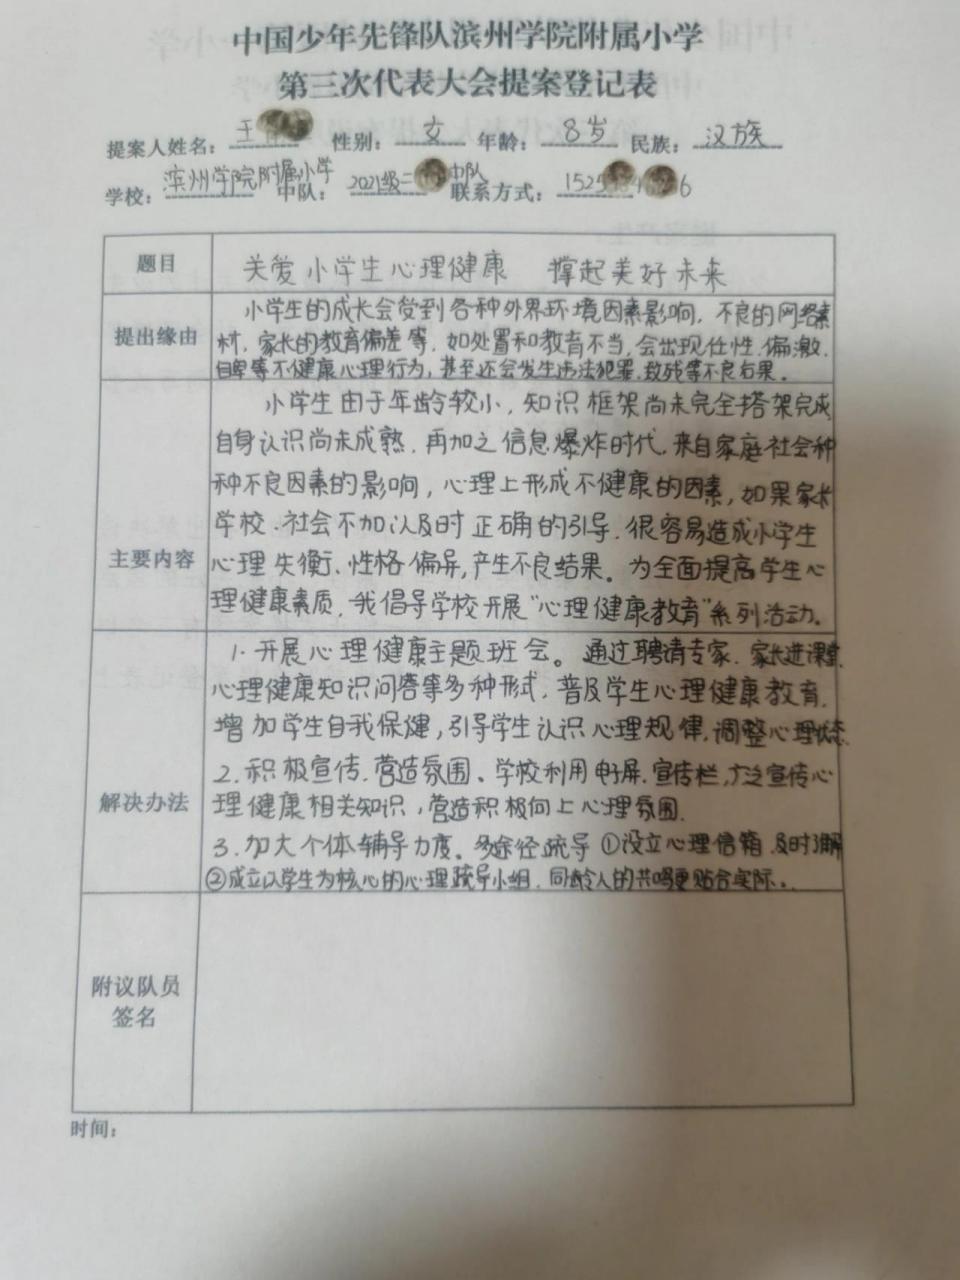 中国少年先锋队滨州学院附属小学
第三次代表大会提案登记表
提案人姓名：王 性别：女 年龄：8岁 民族：汉族
学校：滨州学院附属小学 中队：2021级二 中队 联系方式：1525 6
题目 关爱小学生心理健康 撑起美好未来
提出缘由
小学生的成长会受到各种外界环境因素影响，不良的网络素
材，家长的教育偏差等，如处置和教育不当，会出现任性、偏激、
自卑等不健康心理行为，甚至还会发生违法犯罪、致残等不良后果。
主要内容
小学生由于年龄较小，知识框架尚未完全搭架完成，
自身认识尚未成熟，再加之信息爆炸时代，来自家庭社会种
种不良因素的影响，心理上形成不健康的因素，如果家长
学校、社会不加以及时正确的引导，很容易造成小学生
心理失衡、性格偏异，产生不良结果。为全面提高学生心
理健康素质，我倡导学校开展“心理健康教育”系列活动。
解决办法
1.开展心理健康主题班会。通过聘请专家、家长进课堂、
心理健康知识问答等多种形式，普及学生心理健康教育，
增加学生自我保健，引导学生认识心理规律，调整心理状态
2.积极宣传，营造氛围、学校利用电子屏、宣传栏，广泛宣传心
理健康相关知识，营造积极向上心理氛围.
3.加大个体辅导力度。多途径疏导①设立心理信箱，及时了解
②成立以学生为核心的心理疏导小组，同龄人的共鸣更贴合实际。
附议队员
签名
时间：